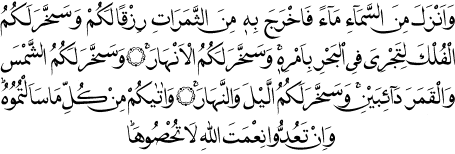 وَاَنْزَلَ مِنَ السَّمَآءِ مَآءً فَاَخْرَجَ بِهٖ مِنَ الثَّمَرَاتِ رِزْقًا لَكُمْ وَسَخَّرَ لَكُمُ
الْفُلْكَ لِتَجْرِىَ فِى الْبَحْرِ بِاَمْرِهٖ وَسَخَّرَ لَكُمُ الْاَنْهَارَ ۝ وَسَخَّرَ لَكُمُ الشَّمْسَ
وَالْقَمَرَ دَآئِبَيْنِ وَسَخَّرَ لَكُمُ الَّيْلَ وَالنَّهَارَ ۝ وَاٰتٰيكُمْ مِنْ كُلِّ مَا سَاَلْتُمُوهُ
وَاِنْ تَعُدُّوا نِعْمَتَ اللّٰهِ لَا تُحْصُوهَا